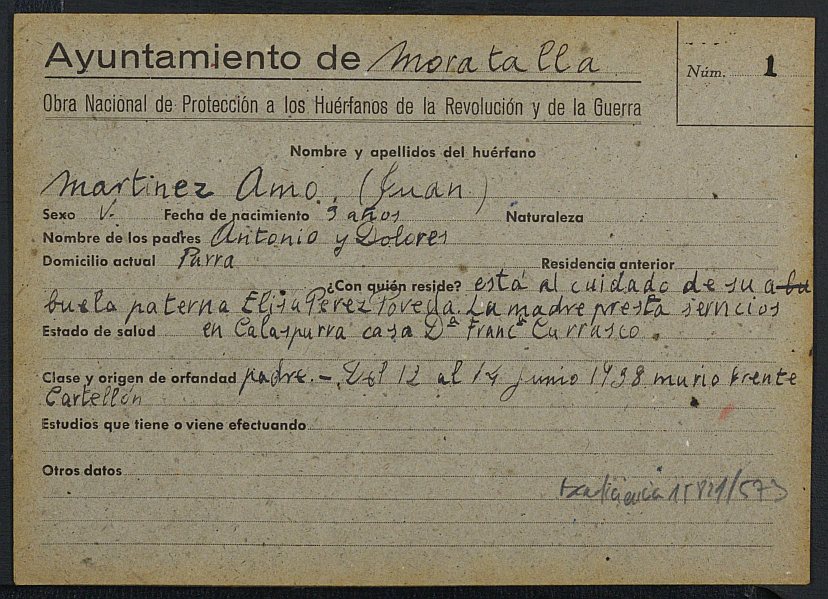 Ayuntamiento de Moratalla
Núm. 1
Obra Nacional de Protección a los Huérfanos de la Revolución y de la Guerra
Nombre y apellidos del huérfano
Martinez Amo. (Juan)
Sexo V. Fecha de nacimiento 9 años Naturaleza
Nombre de los padres Antonio y Dolores
Domicilio actual Parra Residencia anterior
¿Con quién reside? está al cuidado de su abu
buela paterna Elisa Perez Poveda. La madre presta servicios
Estado de salud en Calasparra casa Dª Francª Carrasco.
Clase y origen de orfandad padre. - Del 12 al 14 Junio 1938 murio frente
Cartellón
Estudios que tiene o viene efectuando
Otros datos